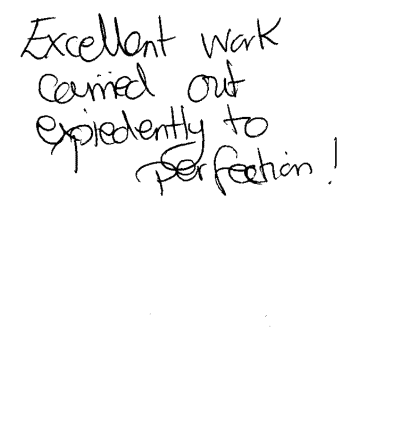 Excellent work
carried out
expiedently to
perfection!